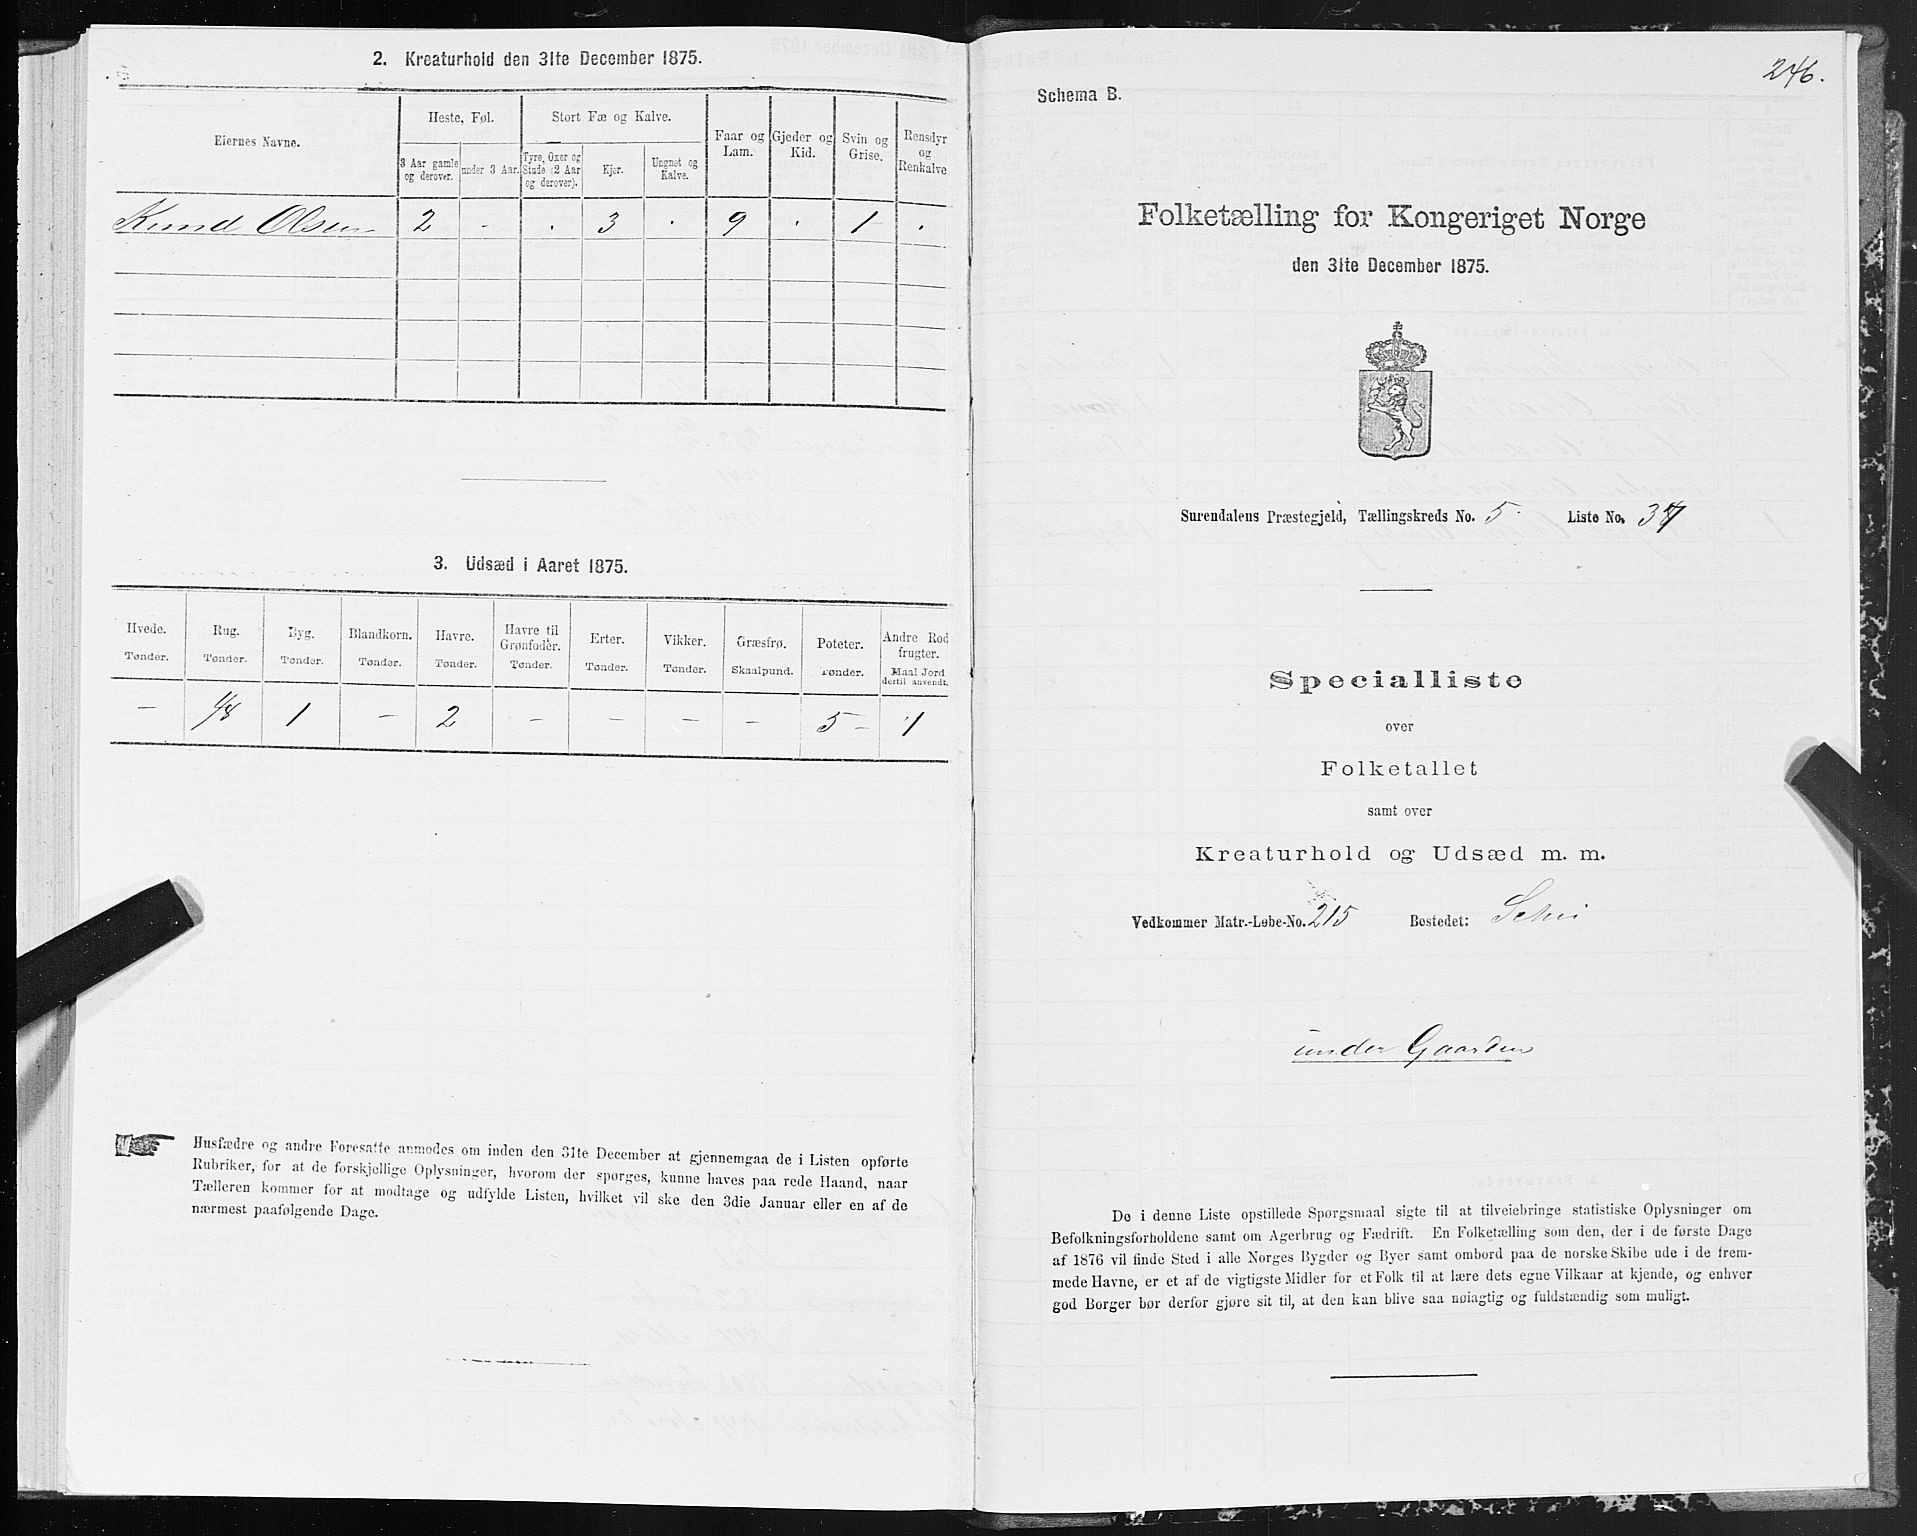 2. Kreaturhold den 31te December 1875.
Eiernes Navne.
Heste, Føl.
Stort Fæ og Kalve.
Faar og Lam.
Gjeder og Kid.
Svin og Grise.
Rensdyr og Renkalve
3 Aar gamle og derover.
under 3 Aar.
Tyre, Oxer og Stude (2 Aar og derover).
Kjør.
Ungnøt og Kalve.
Knud Olsen 2 - . 3 . 9 . 1 .
3. Udsæd i Aaret 1875.
Hvede. Rug. Byg. Blandkorn. Havre. Havre til Grønfoder. Erter. Vikker. Græsfrø. Poteter. Andre Rodfrugter.
Tønder. Tønder. Tønder. Tønder. Tønder. Tønder. Tønder. Tønder. Skaalpund. Tønder. Maal Jord dertil anvendt.
- 1/8 1 - 2 - - - - 5 - 1
Husfædre og andre Foresatte anmodes om inden den 31te December at gjennemgaa de i Listen opførte
Rubriker, for at de forskjellige Oplysninger, hvorom der spørges, kunne haves paa rede Haand, naar
Tælleren kommer for at modtage og udfylde Listen, hvilket vil ske den 3die Januar eller en af de
nærmest paafølgende Dage.
246.
Schema B.
Folketælling for Kongeriget Norge
den 31te December 1875.
Surendalens Præstegjeld, Tællingskreds No. 5. Liste No.
Specialliste
over
Folketallet
samt over
Kreaturhold og Udsæd m. m.
Vedkommer Matr.-Løbe-No. 215 Bostedet:
under Gaarden
De i denne Liste opstillede Spørgsmaal sigte til at tilveiebringe statistiske Oplysninger om
Befolkningsforholdene samt om Agerbrug og Fædrift. En Folketælling som den, der i de første Dage
af 1876 vil finde Sted i alle Norges Bygder og Byer samt ombord paa de norske Skibe ude i de frem-
mede Havne, er et af de vigtigste Midler for et Folk til at lære dets egne Vilkaar at kjende, og enhver
god Borger bør derfor gjøre sit til, at den kan blive saa nøiagtig og fuldstændig som muligt.